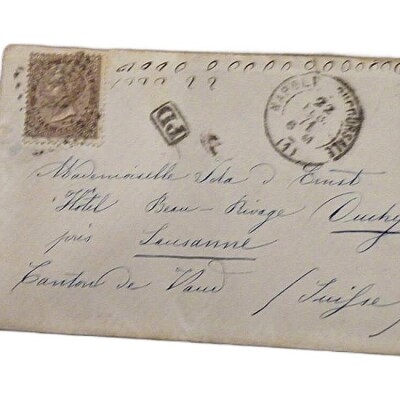 PD
NAPOLI SUCCURSALE
22
71
Mademoiselle Ida d'Ernst
Hôtel Beau-Rivage Ouchy
près Lausanne
Canton de Vaud (Suisse)